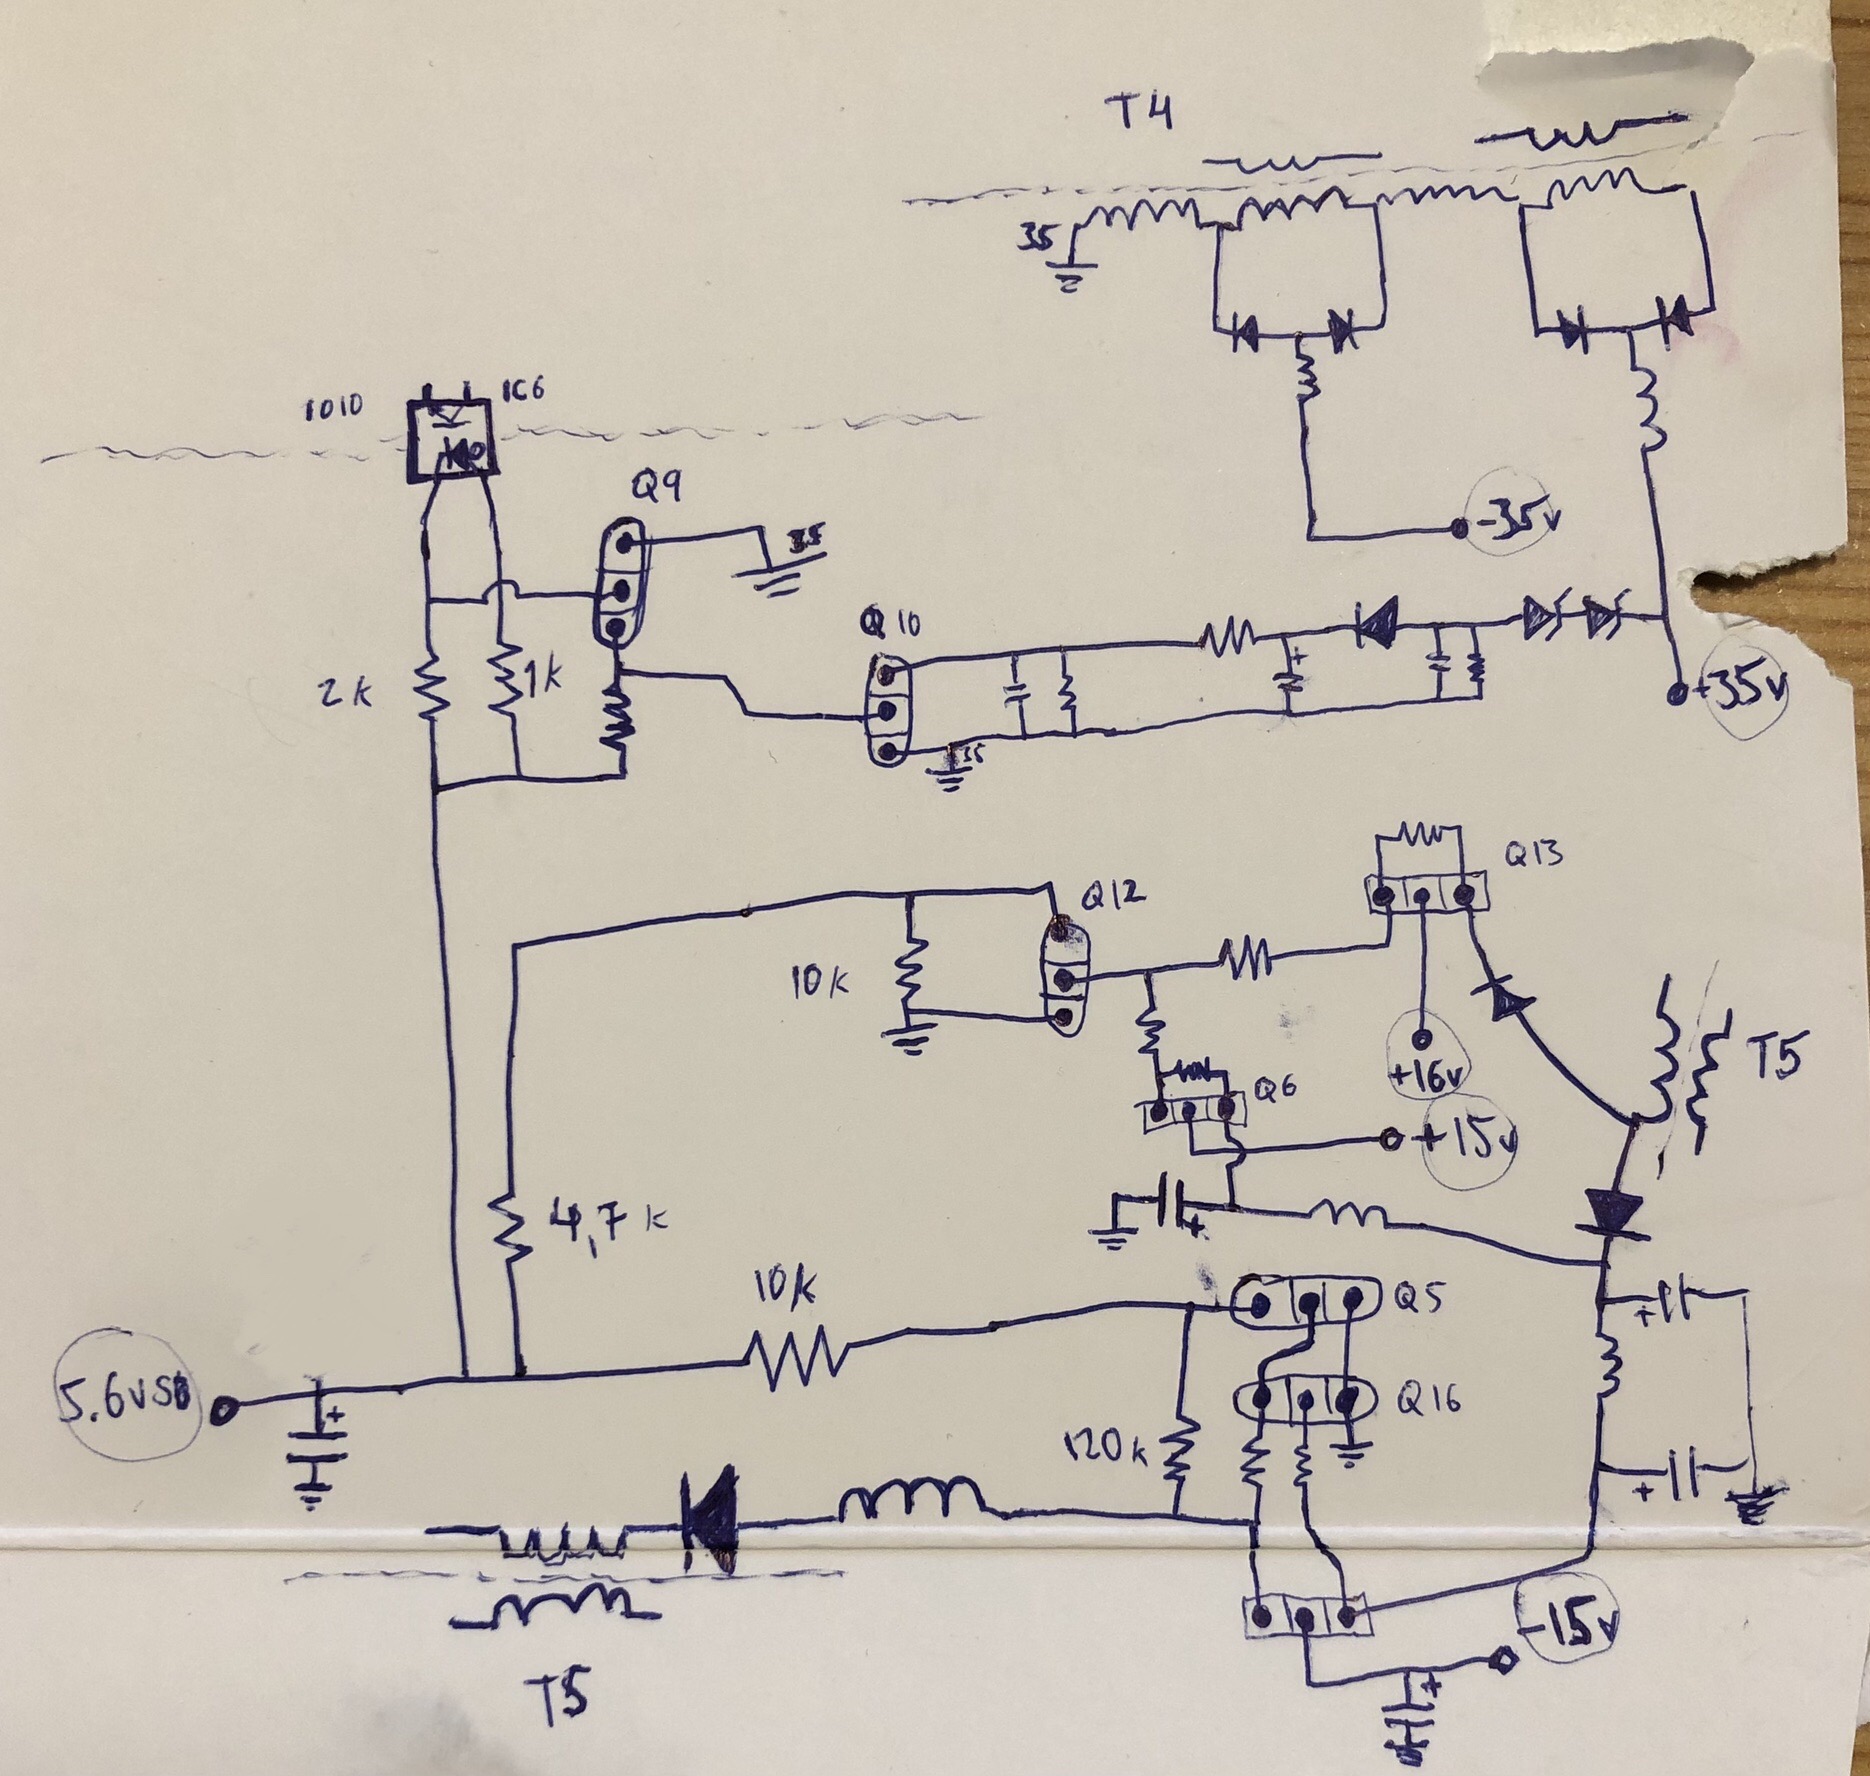 T4
35
1010
IC6
Q9
35
-35v
Q10
2k
1k
+
+35v
35
Q13
Q12
10k
+16v
T5
Q6
+15v
4,7k
+
10k
Q5
+
5.6vSB
+
Q16
120k
+
-15v
+
T5